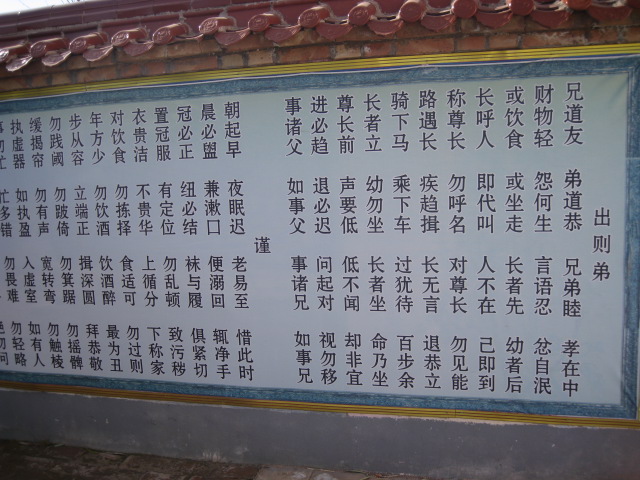 出则弟
兄道友 弟道恭 兄弟睦 孝在中
财物轻 怨何生 言语忍 忿自泯
或饮食 或坐走 长者先 幼者后
长呼人 即代叫 人不在 己即到
称尊长 勿呼名 对尊长 勿见能
路遇长 疾趋揖 长无言 退恭立
骑下马 乘下车 过犹待 百步余
长者立 幼勿坐 长者坐 命乃坐
尊长前 声要低 低不闻 却非宜
进必趋 退必迟 问起对 视勿移
事诸父 如事父 事诸兄 如事兄
谨
朝起早 夜眠迟 老易至 惜此时
晨必盥 兼漱口 便溺回 辄净手
冠必正 纽必结 袜与履 俱紧切
置冠服 有定位 勿乱顿 致污秽
衣贵洁 不贵华 上循分 下称家
对饮食 勿拣择 食适可 勿过则
年方少 勿饮酒 饮酒醉 最为丑
步从容 立端正 揖深圆 拜恭敬
勿践阈 勿跛倚 勿箕踞 勿摇髀
缓揭帘 勿有声 宽转弯 勿触棱
执虚器 如执盈 入虚室 如有人
事勿忙 忙多错 勿畏难 勿轻略